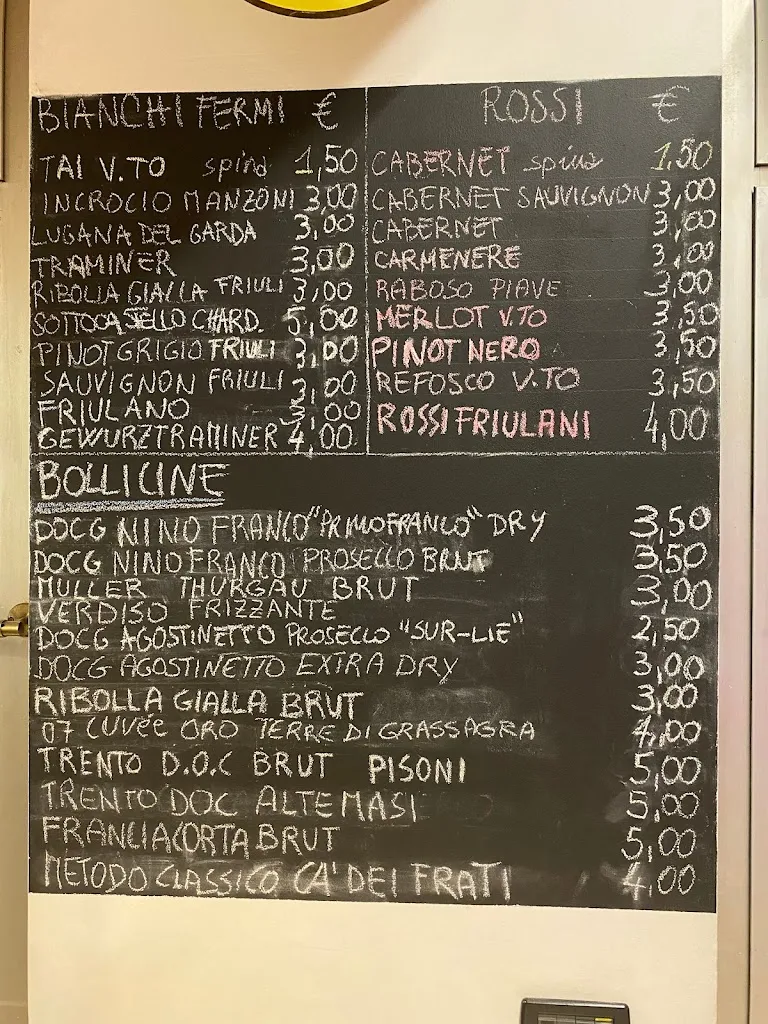 BIANCHI FERMI €
TAI V.TO spina 1,50
INCROCIO MANZONI 3,00
LUGANA DEL GARDA 3,00
TRAMINER 3,00
RIBOLLA GIALLA FRIULI 3,00
SOTTOCASTELLO CHARD. 5,00
PINOT GRIGIO FRIULI 3,00
SAUVIGNON FRIULI 3,00
FRIULANO 3,00
GEWURZTRAMINER 4,00
ROSSI €
CABERNET spina 1,50
CABERNET SAUVIGNON 3,00
CABERNET 3,00
CARMENERE 3,00
RABOSO PIAVE 3,00
MERLOT V.TO 3,50
PINOT NERO 3,50
REFOSCO V.TO 3,50
ROSSI FRIULANI 4,00
BOLLICINE
DOCG NINO FRANCO "PRIMOFRANCO" DRY 3,50
DOCG NINO FRANCO PROSECCO BRUT 3,50
MULLER THURGAU BRUT 3,00
VERDISO FRIZZANTE
DOCG AGOSTINETTO PROSECCO "SUR-LIE" 2,50
DOCG AGOSTINETTO EXTRA DRY 3,00
RIBOLLA GIALLA BRUT 3,00
07 CUVée ORO TERRE DI GRASSAGRA 4,00
TRENTO D.O.C BRUT PISONI 5,00
TRENTO DOC ALTEMASI 5,00
FRANCIACORTA BRUT 5,00
METODO CLASSICO CA' DEI FRATI 4,00